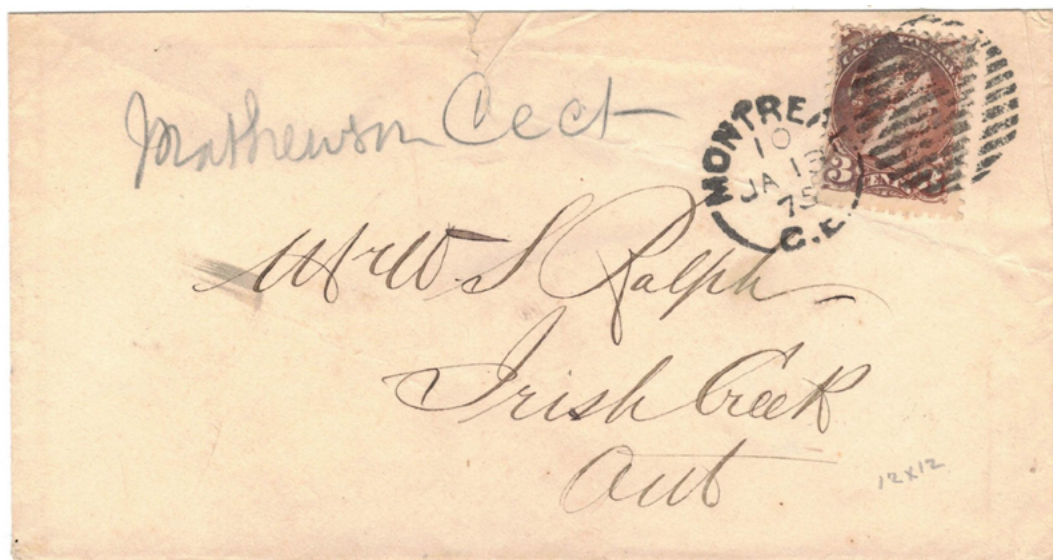 Mathewson Acct
MONTREAL
10
JA 13
75
C.E.
3 CENTS
Mr W S Ralph
Irish Creek
Ont
12x12